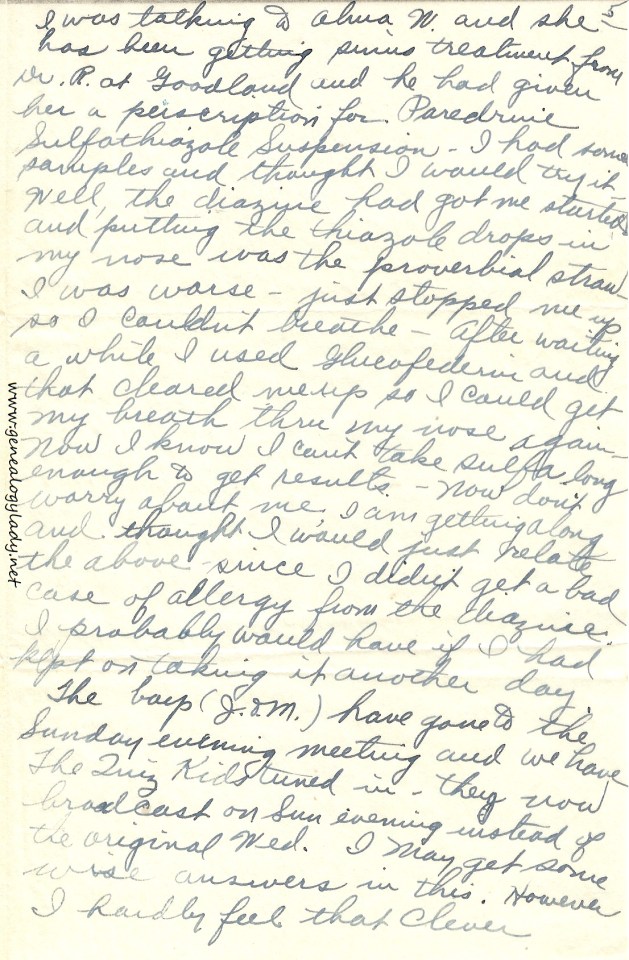 5
I was talking to Alma W. and she
has been getting sinus treatment from
Dr. R. at Goodland and he had given
her a perscription for Paredrine
Sulfathiazole Suspension - I had some
samples and thought I would try it -
Well, the diazine had got me started
and putting the thiazole drops in
my nose was the proverbial straw -
I was worse - just stopped me up
so I couldn't breathe - After waiting
a while I used Glucofedrin and
that cleared me up so I could get
my breath thru my nose again -
Now I know I can't take sulfa long
enough to get results. - Now don't
worry about me. I am getting along
and thought I would just relate
the above since I didn't get a bad
case of allergy from the diazine.
I probably would have if I had
kept on taking it another day.
The boys (J. & M.) have gone to the
Sunday evening meeting and we have
The Quiz Kids tuned in - they now
broadcast on Sun evening instead of
the original Wed. I may get some
wise answers in this. However
I hardly feel that clever
www.genealogylady.net